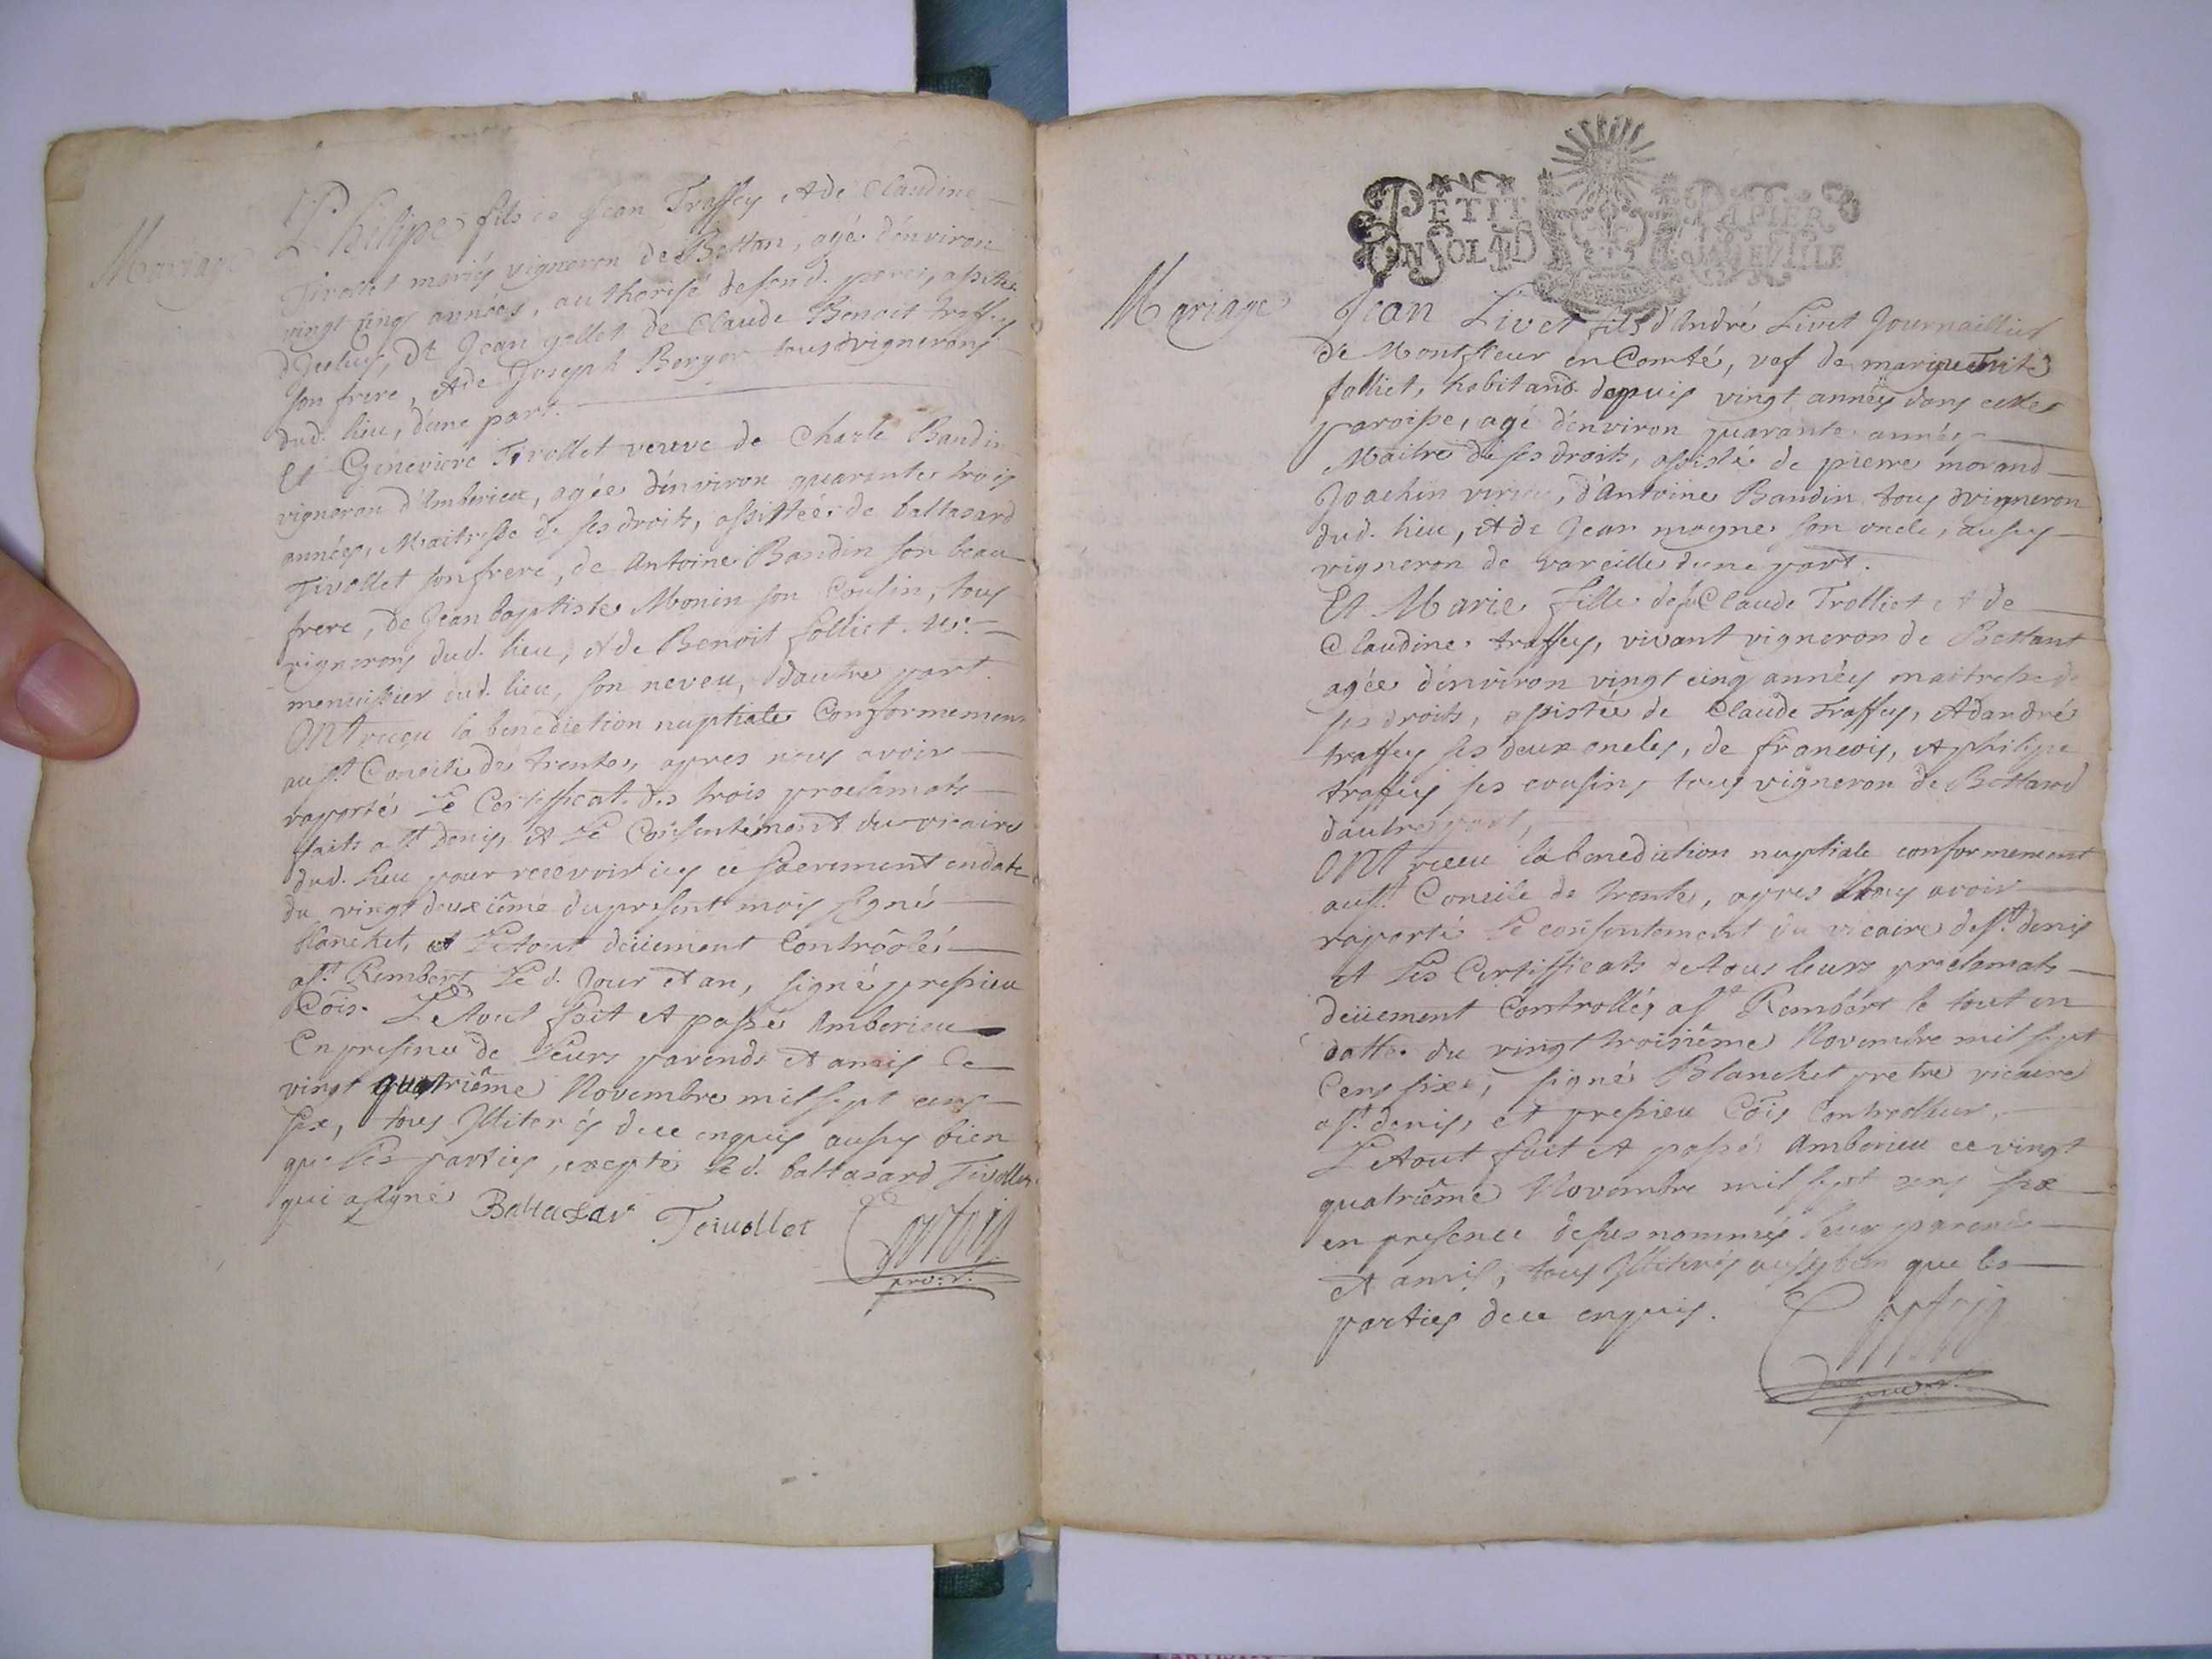 Mariage
Philipe fils de Jean Traffey et de Claudine
Tivollet mariés vigneron de Bettan, agé d'environ
vingt cinq années, authorisé de sond. perer, assisté
de Jean gollet de Claude Benoit traffey
son frere, et de Joseph Berger tous vignerons
dud. lieu, d'une part.
Et Genevieve Tivollet veuve de Charle Baudin
vigneron d'Amberieu, agée d'environ quarante trois
années, Maitresse de ses droits, assistée de baltasard
Tivollet son frere, de Antoine Baudin son beau
frere, de Jean baptiste Monin son Cousin, tous
vignerons dud. lieu, et de Benoit folliet
menuisier dud. lieu, son neveu, d'autre part.
ONt reçeu la benediction nuptiale Conformement
au st. Concile de trente, apres nous avoir
raporté Le Certifficat des trois proclamats
faits a st. Denis, et Le Consentement du vicaire
dud. lieu pour recevoir icy ce sacrement en date
du vingt deuxième du present mois signé
blanchet, et Le tout deüement Controlé
a st. Rembert Le d. Jour et an, signé pressieu
Cõis. Le tout fait et passé Amberieu
En presence de Leurs parends et amis Ce
vingt quatriême Novembre mil sept cens
six, tous Illiterés de ce enquis aussy bien
que Les parties, excepté Le d. baltasard Tivollet
qui a signé Baltazar Teiuollet

PETIT PAPIER
UN SOL 4 D
Mariage
Jean Livet fils d'André Livet Journaillier
de Montfleur en Comté, vef de marguerite
folliet, habitand depuis vingt années dans cette
paroisse, agé d'environ quarante années
Maitre de ses droits, assisté de pierre morand
Joachin, d'Antoine Baudin tous vigneron
dud. lieu, et de Jean moyne son oncle, aussy
vigneron de vareille d'une part.
Et Marie fille de fû Claude Trolliet et de
Claudine traffey, vivant vigneron de Bettant
agée d'environ vingt cinq années maitresse de
ses droits, assistée de Claude Traffey, et d'andré
traffey ses deux oncles, de françois, et philipe
traffey ses cousins tous vigneron de Bettand
d'autre part,
ONt reçeu la benediction nuptiale conformement
au st. Concile de trente, apres Nous avoir
raporté le consentement du vicaire de st. denis
et Les Certifficats de tous leurs proclamats
deüement Controllés a st. Rembert le tout en
datte du vingt troisiême Novembre mil sept
Cens six, signé Blanchet pretre vicaire
a st. denis, et pressieu Cõis Controlleur.
Le tout fait et passé Amberieu ce vingt
quatriême Novembre mil sept cens six
en presence desus nommés leur parends
et amis, tous Illiterés aussy bien que les
parties de ce enquis.